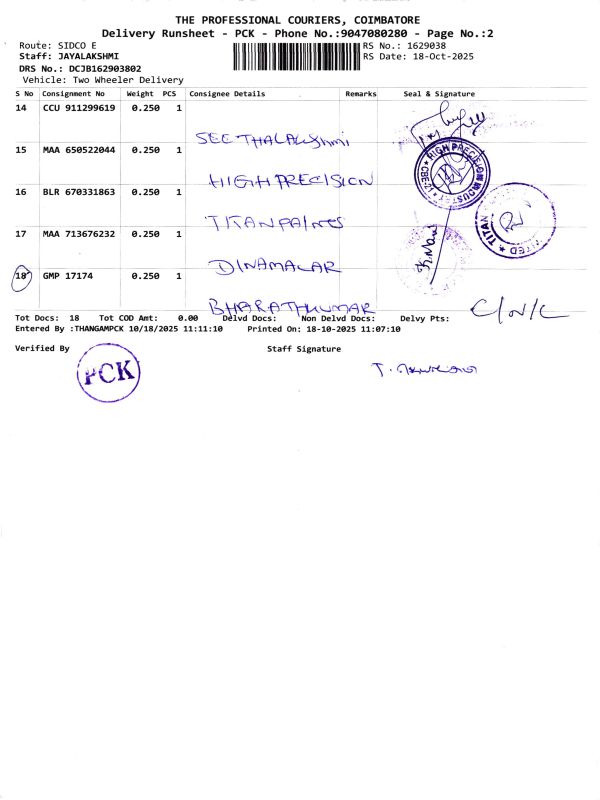 THE PROFESSIONAL COURIERS, COIMBATORE
Delivery Runsheet - PCK - Phone No.:9047080280 - Page No.:2
Route: SIDCO E RS No.: 1629038
Staff: JAYALAKSHMI RS Date: 18-Oct-2025
DRS No.: DCJB162903802
Vehicle: Two Wheeler Delivery
S No Consignment No Weight PCS Consignee Details Remarks Seal & Signature
14 CCU 911299619 0.250 1
SEETHALAKSHMI
15 MAA 650522044 0.250 1
HIGH PRECISION
HIGH PRECISION
16 BLR 670331863 0.250 1
TITAN PAINTS
TITAN
17 MAA 713676232 0.250 1
DINAMALAR
18 GMP 17174 0.250 1
BHARATHKUMAR
C/N/L
Tot Docs: 18 Tot COD Amt: 0.00 Delvd Docs: Non Delvd Docs: Delvy Pts:
Entered By :THANGAMPCK 10/18/2025 11:11:10 Printed On: 18-10-2025 11:07:10
Verified By Staff Signature
PCK